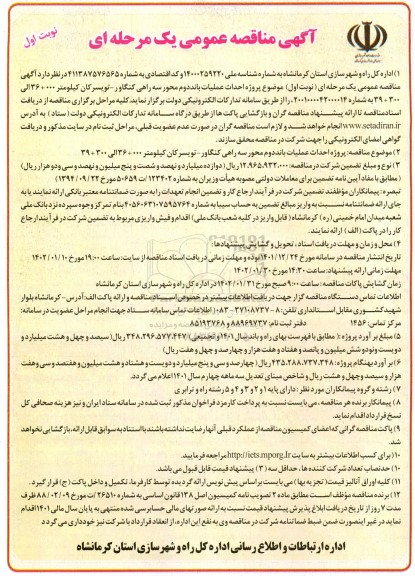 آگهی مناقصه عمومی یک مرحله ای
نوبت اول
۱) اداره کل راه و شهرسازی استان کرمانشاه به شماره شناسه ملی ۱۴۰۰۰۲۵۹۲۲۰ و کد اقتصادی به شماره ۴۱۱۳۸۷۵۷۶۵۶۵ در نظر دارد آگهی
مناقصه عمومی یک مرحله ای (نوبت اول) موضوع پروژه احداث عملیات باند دوم محور سه راهی کنگاور - تویسرکان کیلومتر ۰۰۰+۳۶ الی
۳۰۰+۳۹ به شماره ۲۰۰۱۰۰۰۰۴۳۰۰۰۰۱۴ را از طریق سامانه تدارکات الکترونیکی دولت برگزار نماید. کلیه مراحل برگزاری مناقصه از دریافت
اسناد مناقصه تا ارائه پیشنهاد مناقصه گران و بازگشایی پاکت ها از طریق درگاه سامانه تدارکات الکترونیکی دولت (ستاد) به آدرس
www.setadiran.ir انجام خواهد شد و لازم است مناقصه گران در صورت عدم عضویت قبلی، مراحل ثبت نام در سایت مذکور و دریافت
گواهی امضای الکترونیکی را جهت شرکت در مناقصه محقق سازند.
۲) موضوع مناقصه: پروژه احداث عملیات باند دوم محور سه راهی کنگاور - تویسرکان کیلومتر ۰۰۰+۳۶ الی ۳۰۰+۳۹
۳) نوع و مبلغ تضمین شرکت در مناقصه: ۱۲،۹۶۵،۹۳۲،۰۰۰ ریال (دوازده میلیارد و نهصد و شصت و پنج میلیون و نهصد و سی و دو هزار ریال)
(مطابق با مفاد آیین نامه تضمین برای معاملات دولتی مصوبه هیأت وزیران به شماره ۱۲۳۴۰۲/ت۵۰۶۵۹ مورخ ۱۳۹۴/۰۹/۲۲)
تبصره: پیمانکاران مؤظفند تضمین شرکت در فرآیند ارجاع کار و تضمین انجام تعهدات را به صورت ضمانتنامه معتبر بانکی ارائه نمایند یا به
جای ارائه ضمانتنامه نسبت به واریز مبالغ تضمین به حساب سیبا به شماره بنام تمرکز وجوه سپرده نزد بانک ملی
شعبه میدان امام خمینی (ره) کرمانشاه (قابل واریز در کلیه شعب بانک ملی) اقدام و فیش واریزی مربوط به تضمین شرکت در فرآیند ارجاع
کار را در پاکت (الف) ارائه نمایند.
۴) محل و زمان و مهلت دریافت اسناد، تحویل و گشایش پیشنهادها:
تاریخ انتشار مناقصه در سامانه مورخ ۱۴۰۱/۱۲/۲۴ بوده و مهلت زمانی دریافت اسناد مناقصه از سایت: ساعت ۱۹:۰۰ مورخ ۱۴۰۲/۰۱/۱۰
مهلت زمانی ارائه پیشنهاد: ساعت ۱۴:۳۰ مورخ ۱۴۰۲/۰۱/۳۰
زمان گشایش پاکات مناقصه: ساعت ۹:۰۰ صبح مورخ ۱۴۰۲/۰۱/۳۱ در اداره کل راه و شهرسازی استان کرمانشاه
اطلاعات تماس دستگاه مناقصه گزار جهت دریافت اطلاعات بیشتر در خصوص اسناد مناقصه و ارائه پاکت الف: آدرس - کرمانشاه بلوار
شهید کشوری مقابل استانداری تلفن: ۸-۳۷۱۰۸۷۳۷-۰۸۳ اطلاعات تماس سامانه ستاد جهت انجام مراحل عضویت در سامانه:
مرکز تماس: ۱۴۵۶ دفتر ثبت نام: ۸۸۹۶۹۷۳۷ و ۸۵۱۹۳۷۶۸
۵) مبلغ برآورد پروژه: مطابق با فهرست بهای راه و باند سال ۱۴۰۱ و تجمیعی / ۳۴۸،۲۹۶،۵۷۷،۴۴۷ ریال (سیصد و چهل و هشت میلیارد و
دویست و نود و شش میلیون و پانصد و هفتاد و هفت هزار و چهارصد و چهل و هفت ریال)
۶) برآورد بهنگام پروژه: ۴۳۵،۲۸۸،۷۳۷،۳۴۸ ریال (چهارصد و سی و پنج میلیارد و دویست و هشتاد و هشت میلیون و هفتصد و سی و هفت
هزار و سیصد و چهل و هشت ریال و شاخص مبنای تعدیل سه ماهه چهارم سال ۱۴۰۱ اعلام می گردد.
۷) رشته و گروه پیمانکاران مورد نظر: دارای پایه ۱ و ۲ و ۳ و ۴ و ۵ رشته راه و ترابری
۸) پیمانکار برنده هر مناقصه، می بایست نسبت به پرداخت کارمزد فراخوان مذکور ثبت شده در سامانه ستاد ایران و نیز هزینه صحافی کل
نسخ قرارداد اقدام نماید.
۹) پاکت مناقصه گرانی که اعضای کمیسیون مناقصه از عملکرد قبلی آنها رضایت نداشته باشند با استناد به سوابق قابل ارائه، بازگشایی نخواهد
شد.
۱۰) برای کسب اطلاعات بیشتر به سایت http://iets.mporg.ir مراجعه فرمایید.
۱۰) حد نصاب تعداد شرکت کننده ها، حداقل سه (۳) پیشنهاد قیمت قابل قبول می باشد.
۱۱) کلیه اوراق آنالیز قیمت (تجزیه بها) می بایست براساس پیش نویس ارائه گردیده توسط کارفرما، تکمیل و داخل پاکت (ج) قرار گیرد.
۱۲) برنده مناقصه مؤظف است مطابق ماده ۲ تصویب نامه کمیسیون اصل ۱۳۸ قانون اساسی به شماره ۲۶۵۱۰/ت مورخ ۸۸/۰۲/۰۹ ظرف
مدت ۷ روز از تاریخ دریافت ابلاغ پذیرش پیشنهاد قیمت نسبت به ارائه صورتهای مالی حسابرسی شده منتهی به پایان سال مالی ۱۴۰۱ اقدام
نماید در غیر اینصورت ضمن ضبط ضمانتنامه شرکت در مناقصه وی به نفع این اداره، از انعقاد قرارداد با شرکت نیز خودداری می گردد
اداره ارتباطات و اطلاع رسانی اداره کل راه و شهرسازی استان کرمانشاه